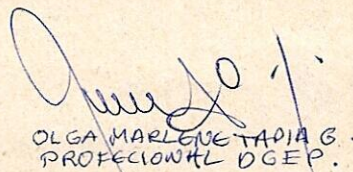 OLGA MARLENE TAPIA G.
PROFECIONAL DGEP.